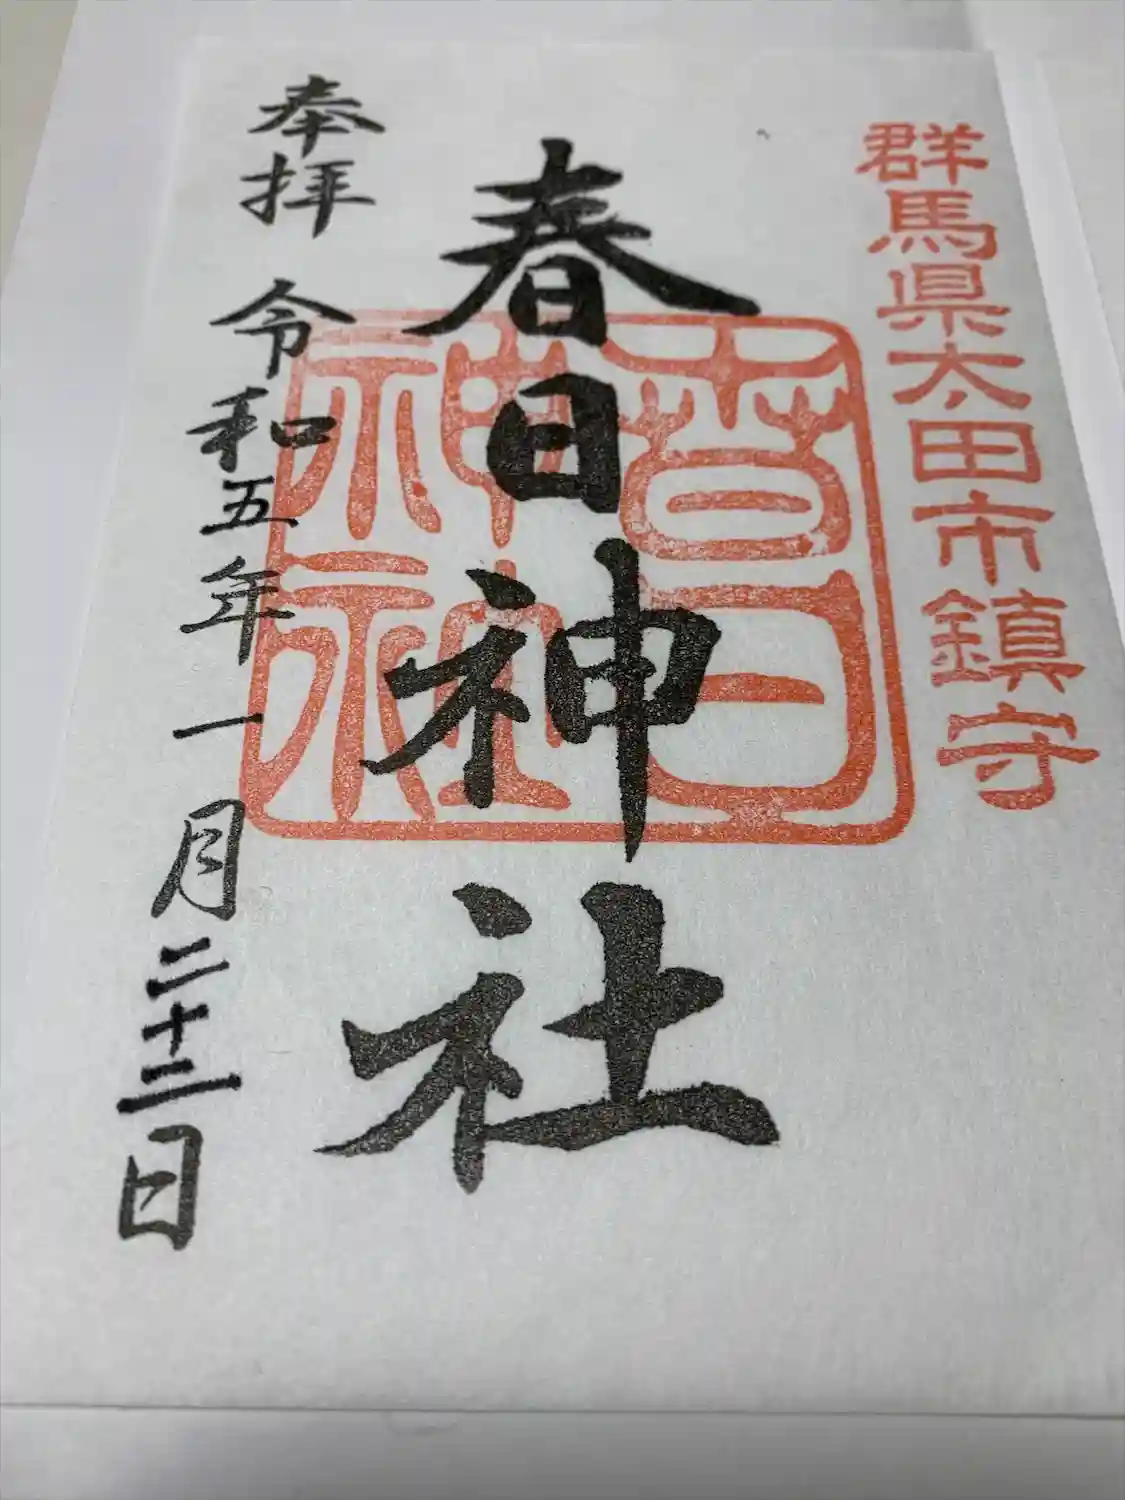 群馬県太田市鎮守
春日神社
春日神社
奉拝 令和五年一月二十三日